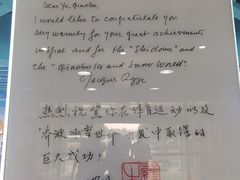 Dear Ye, Qiaobo,
I would like to congratulate you
very warmly for your great achievements
in sport and for the "Ski Dome" and
the "Qiaobo Ice and Snow World".
Jacques Rogge
热烈祝贺你在体育运动以及
"乔波冰雪世界"事业中取得的
巨大成功!